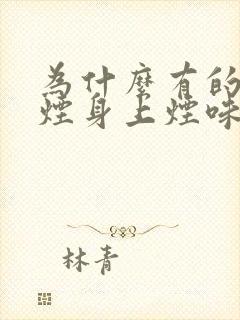 為什麼有的
煙身上煙味
林青